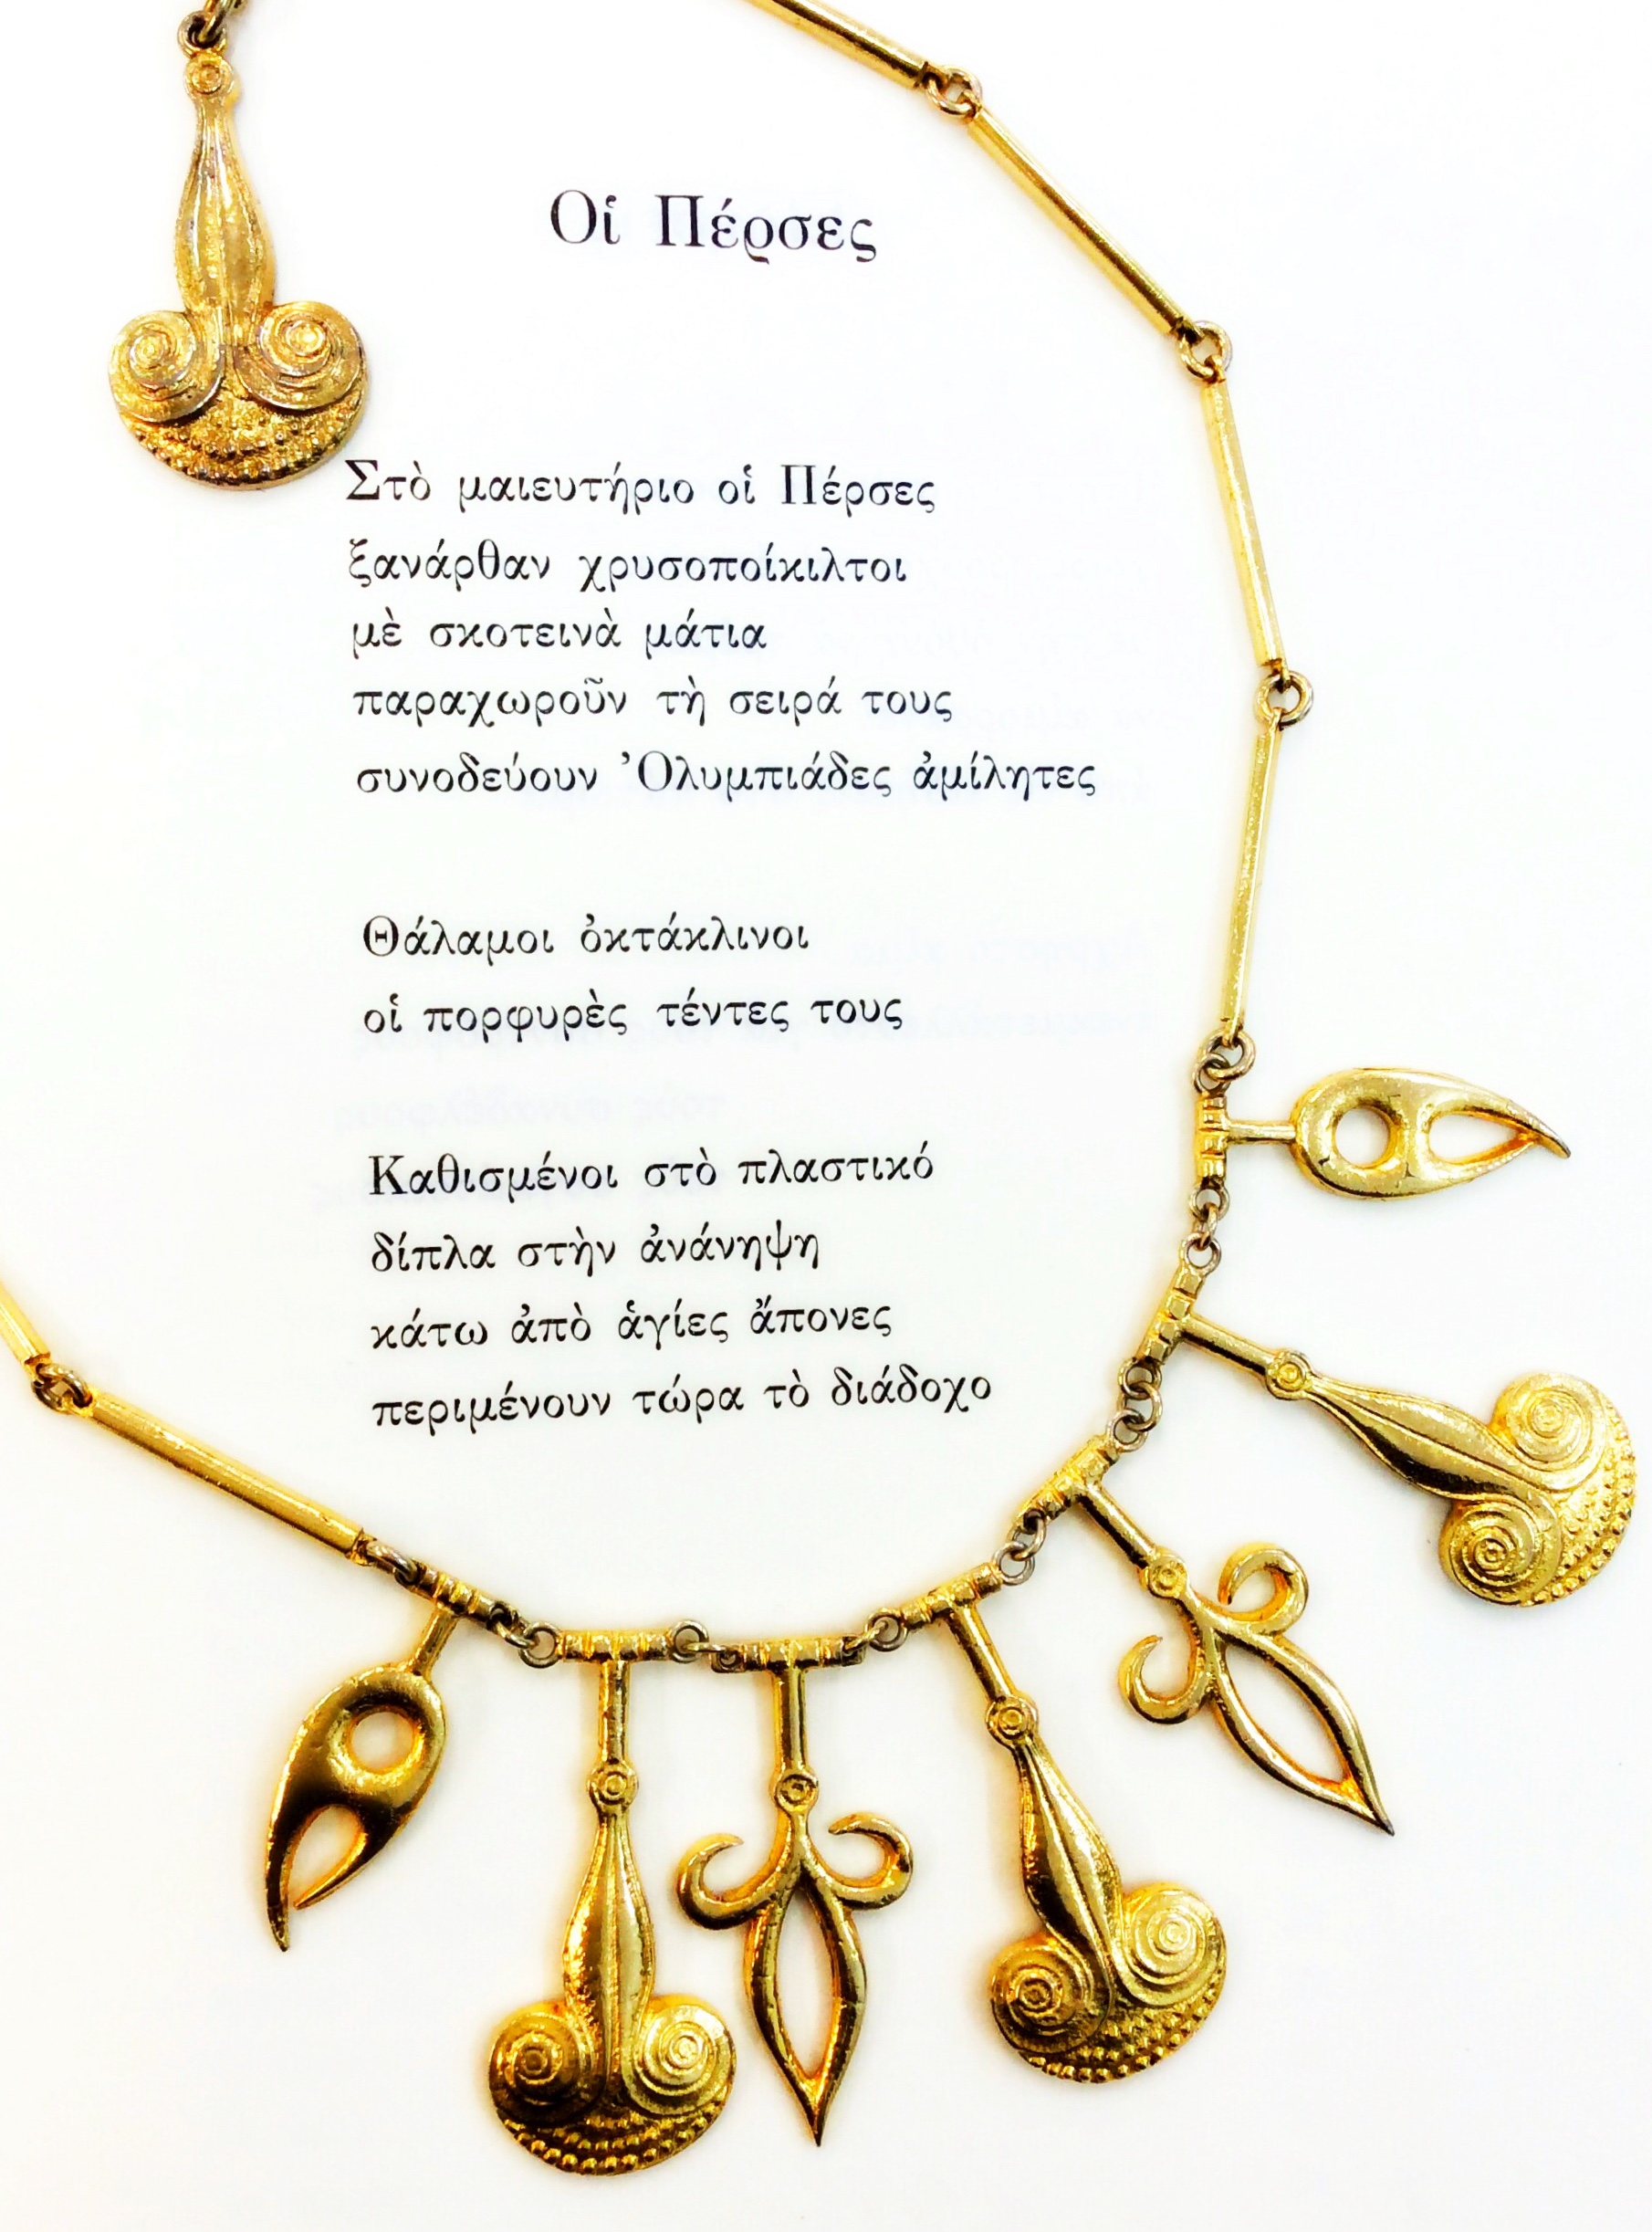 Οἱ Πέρσες
Στὸ μαιευτήριο οἱ Πέρσες
ξανάρθαν χρυσοποίκιλτοι
μὲ σκοτεινὰ μάτια
παραχωροῦν τὴ σειρά τους
συνοδεύουν Ὀλυμπιάδες ἀμίλητες
Θάλαμοι ὀκτάκλινοι
οἱ πορφυρὲς τέντες τους
Καθισμένοι στὸ πλαστικό
δίπλα στὴν ἀνάνηψη
κάτω ἀπὸ ἁγίες ἄπονες
περιμένουν τώρα τὸ διάδοχο